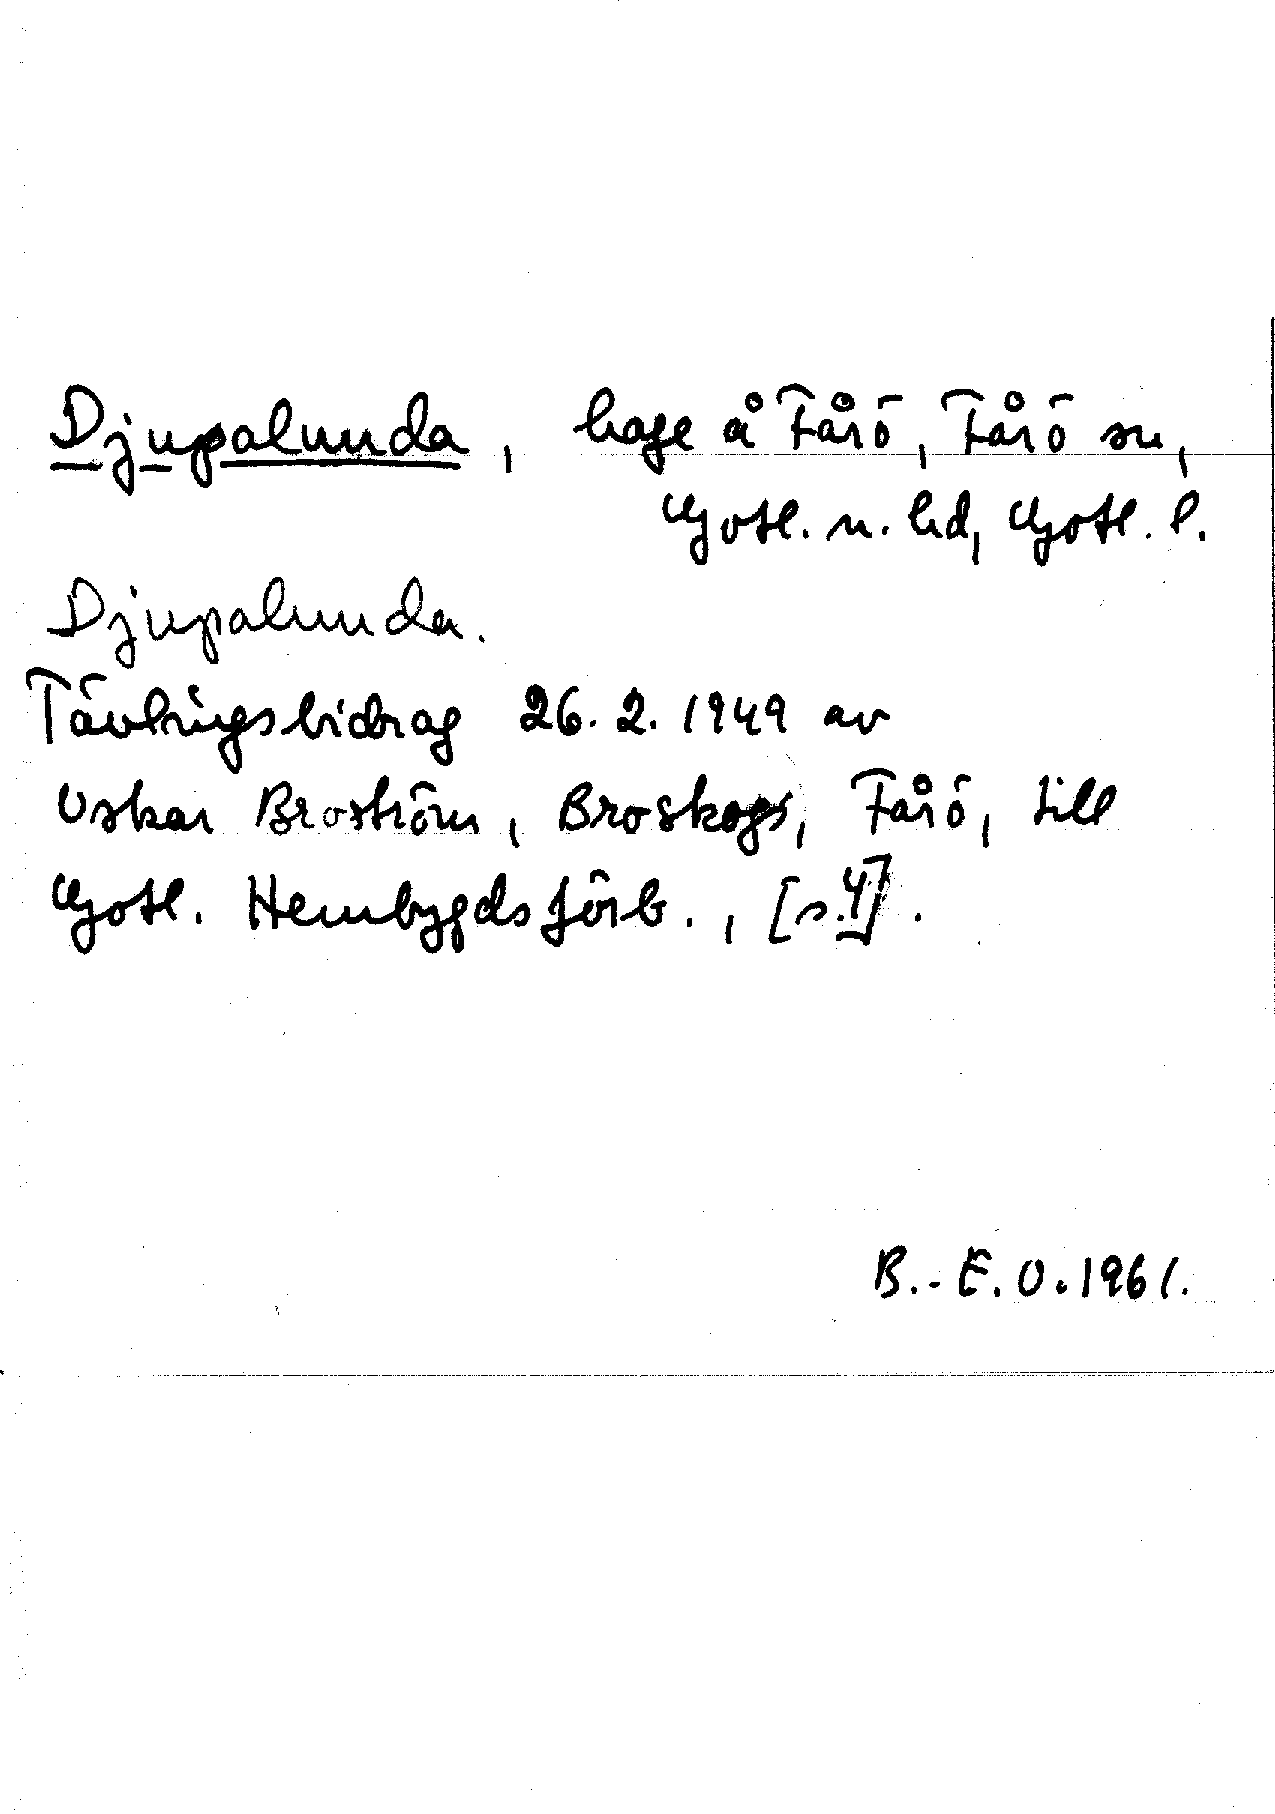 Djupalunda, hage å Fårö, Fårö sn,
Gotl. n. hd, Gotl. l.
Djupalunda.
Tävlingsbidrag 26.2.1949 av
Oskar Broström, Broskogs, Fårö, till
Gotl. Hembygdsförb., [s.4].
B.-E.O.1961.